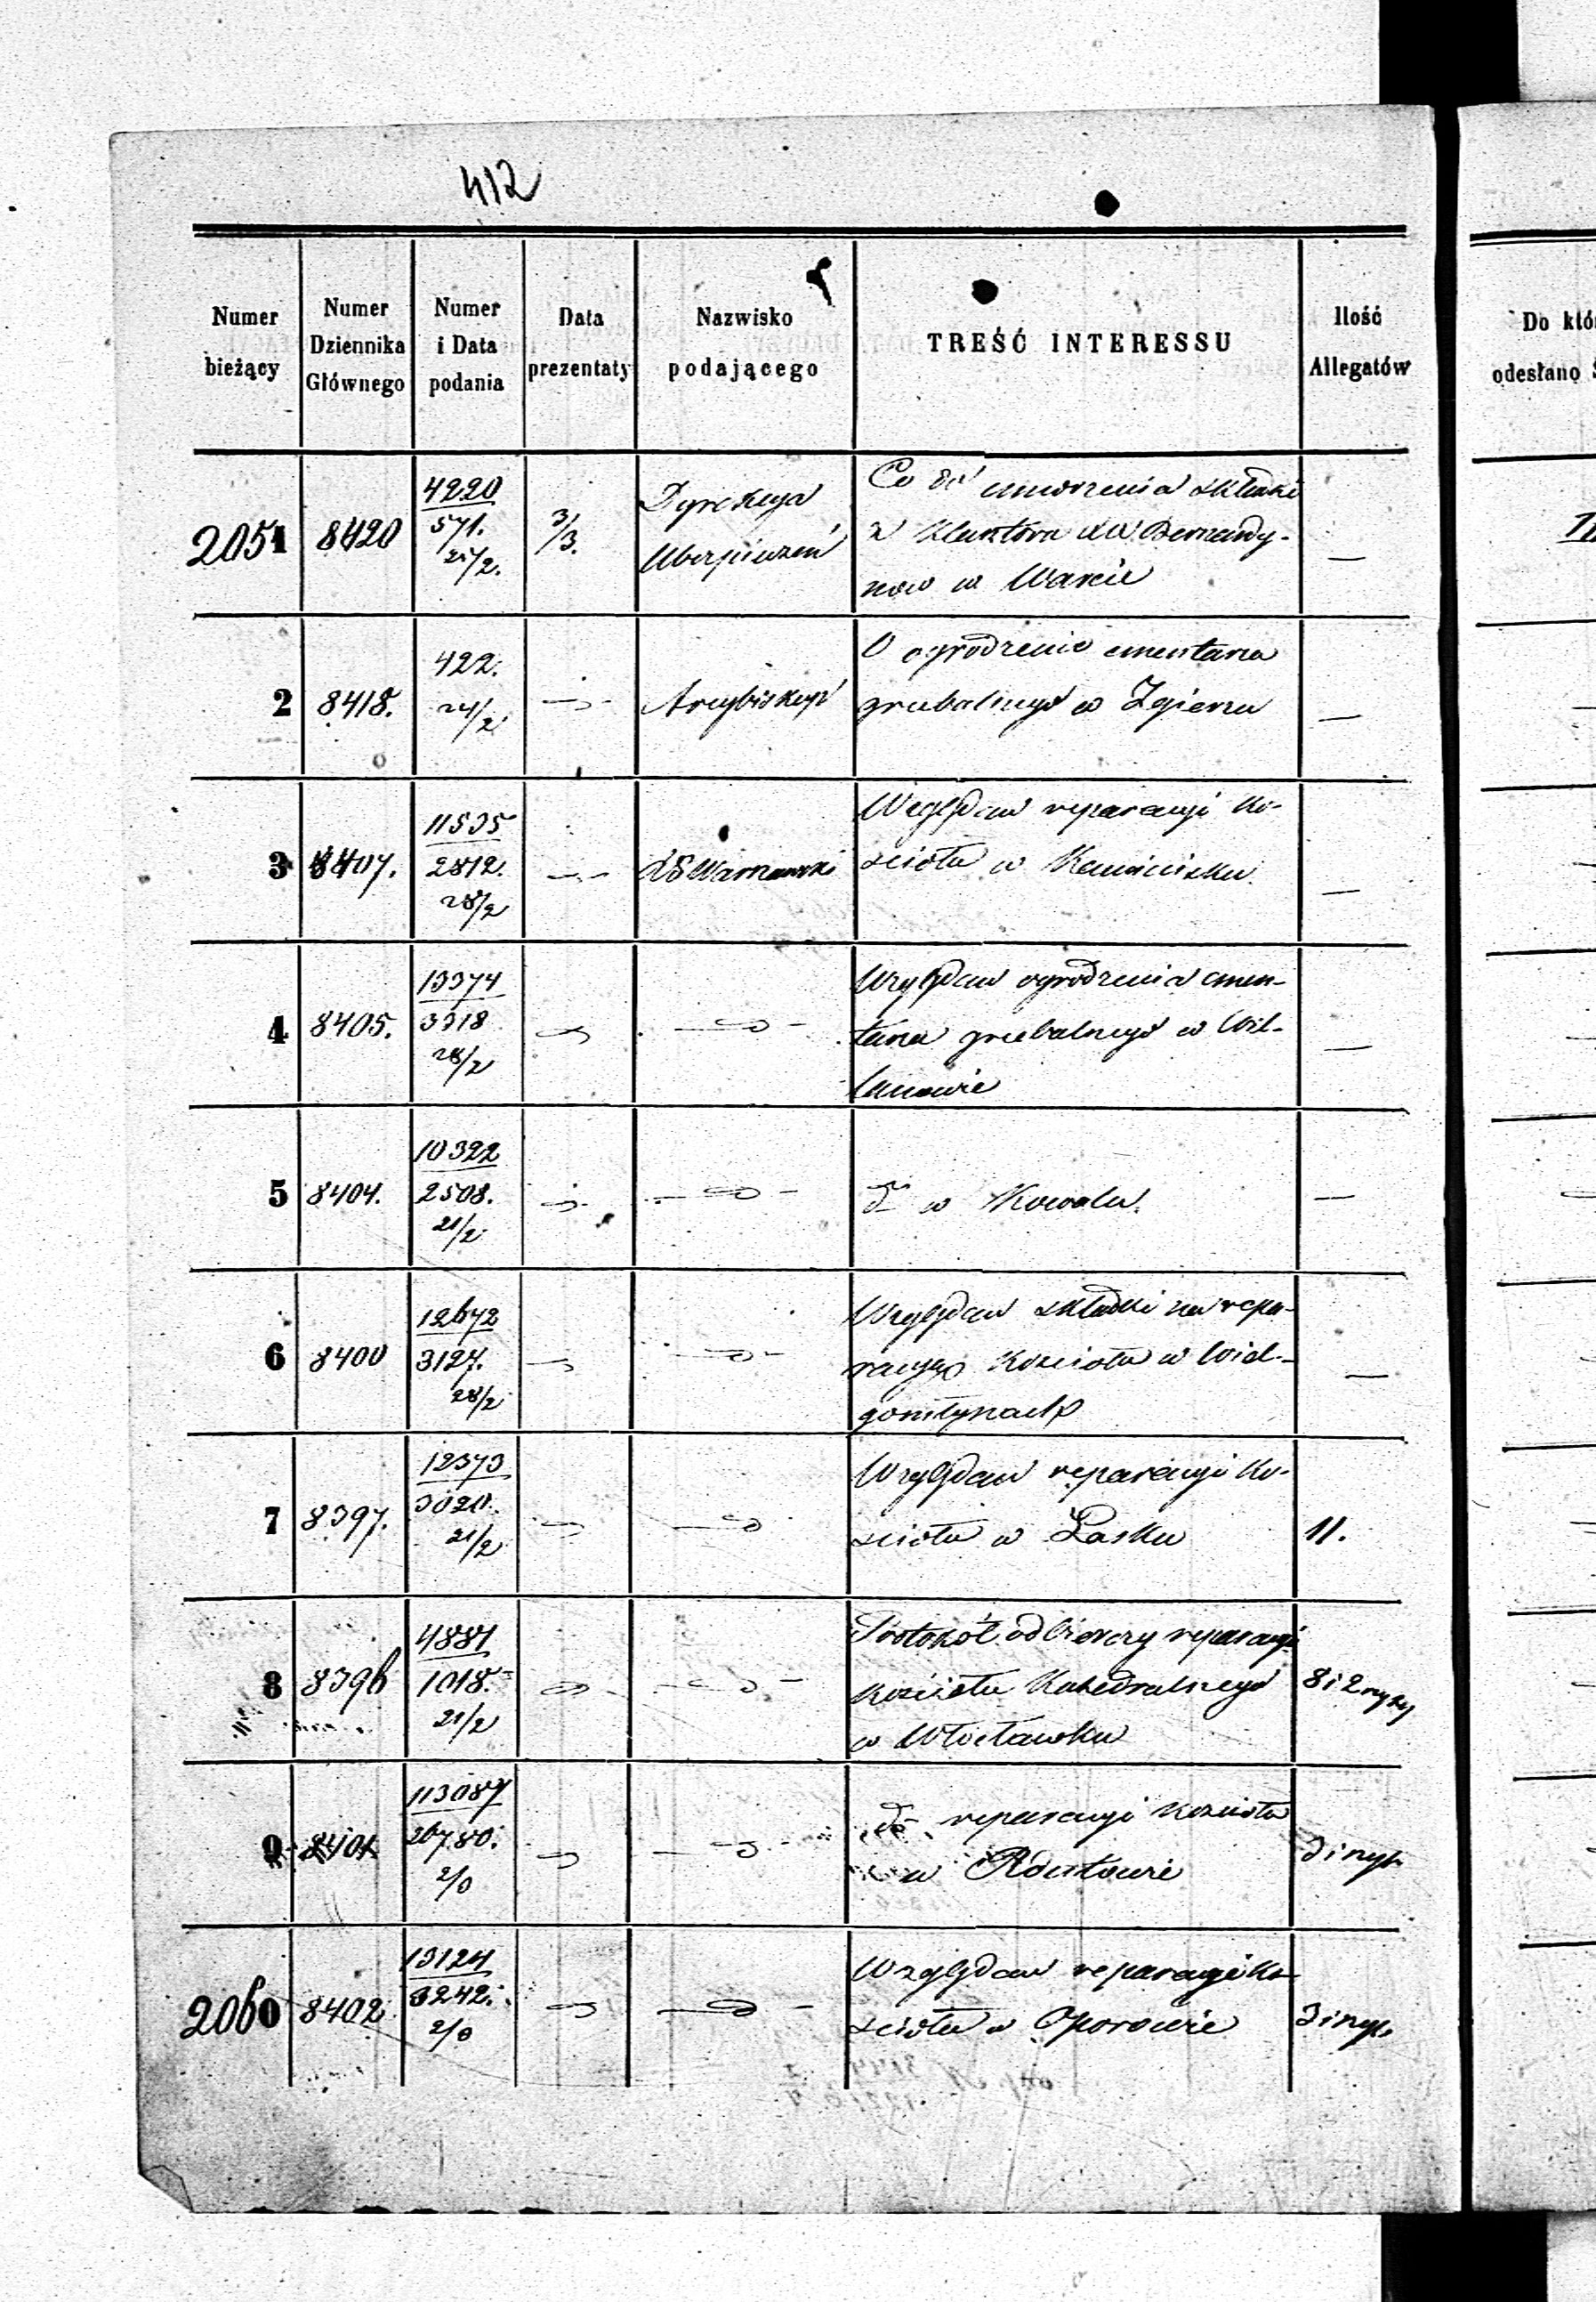 412
Numer bieżący
Numer Dziennika Głównego
Numer i Data podania
Data prezentaty
Nazwisko podającego
TREŚĆ INTERESSU
Ilość Allegatów
Do któ
odesłano
2051
8420
4220
571.
3/3.
Dyrekcya
Ubezpieczeń
Co do umorzenia składki
z Klasztoru XX Bernardy-
now w Warcie
—
2
8418.
422.
24/2
Arcybiskup
O ogrodzenie cmentarza
grzebalnego w Zgierzu
—
3
8407.
11535
2812.
28/2
Warszawski
Względem reparacyi Ko-
scioła w
—
4
8405.
13374
3318
28/2
Względem ogrodzenia cmen-
tarza grzebalnego w Wil-
lanowie
—
5
8404.
10322
2508.
21/2
do w Kowalu.
—
6
8400
12672
3127.
28/2
Względem składki na repa-
racyą Kościoła w Wiel-
gomłynach
—
7
8397.
12373
3020.
21/2
Względem reparacyi Ko-
scioła w Łasku
11.
8
8396
4881
1018.
21/2
Protokół odbiorczy reparacyi
Kościoła Katedralnego
w Włocławku
8 i 2 rysy
9
8401
113087
26780.
2/3
do reparacyi Kościoła
w
2060
8402
13124
3242.
2/3
Względem reparacyi Ko-
scioła w Oporowie